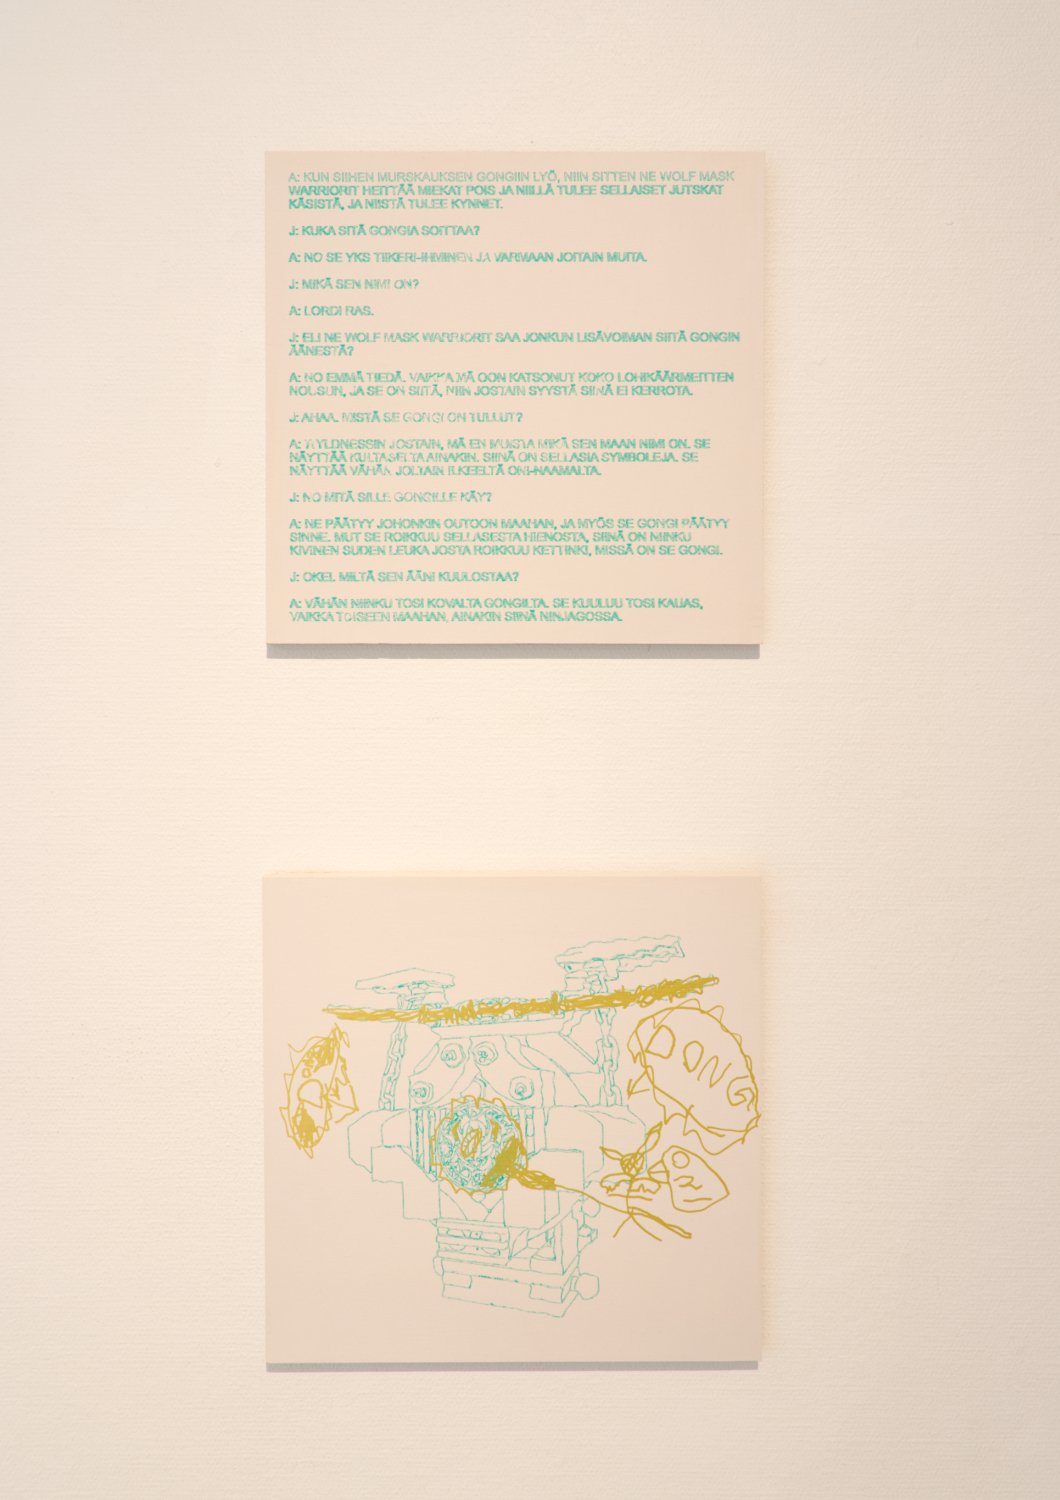 A: KUN SIIHEN MURSKAUKSEN GONGIIN LYÖ, NIIN SITTEN NE WOLF MASK
WARRIORIT HEITTÄÄ MIEKAT POIS JA NIILLÄ TULEE SELLAISET JUTSKAT
KÄSISTÄ, JA NIISTÄ TULEE KYNNET.
J: KUKA SITÄ GONGIA SOITTAA?
A: NO SE YKS TIIKERI-IHMINEN JA VARMAAN JOITAIN MUITA.
J: MIKÄ SEN NIMI ON?
A: LORDI RAS.
J: ELI NE WOLF MASK WARRIORIT SAA JONKUN LISÄVOIMAN SIITÄ GONGIN
ÄÄNESTÄ?
A: NO EMMÄ TIEDÄ. VAIKKA MÄ OON KATSONUT KOKO LOHIKÄÄRMEITTEN
NOUSUN, JA SE ON SIITÄ, NIIN JOSTAIN SYYSTÄ SIINÄ EI KERROTA.
J: AHAA. MISTÄ SE GONGI ON TULLUT?
A: WYLDNESSIN JOSTAIN, MÄ EN MUISTA MIKÄ SEN MAAN NIMI ON. SE
NÄYTTÄÄ KULTASELTA AINAKIN. SIINÄ ON SELLASIA SYMBOLEJA. SE
NÄYTTÄÄ VÄHÄN JOLTAIN ILKEELTÄ ONI-NAAMALTA.
J: NO MITÄ SILLE GONGILLE KÄY?
A: NE PÄÄTYY JOHONKIN OUTOON MAAHAN, JA MYÖS SE GONGI PÄÄTYY
SINNE. MUT SE ROIKKUU SELLASESTA HIENOSTA, SIINÄ ON NIINKU
KIVINEN SUDEN LEUKA JOSTA ROIKKUU KETTINKI, MISSÄ ON SE GONGI.
J: OKEI. MILTÄ SEN ÄÄNI KUULOSTAA?
A: VÄHÄN NIINKU TOSI KOVALTA GONGILTA. SE KUULUU TOSI KAUAS,
VAIKKA TOISEEN MAAHAN, AINAKIN SIINÄ NINJAGOSSA.
DONG